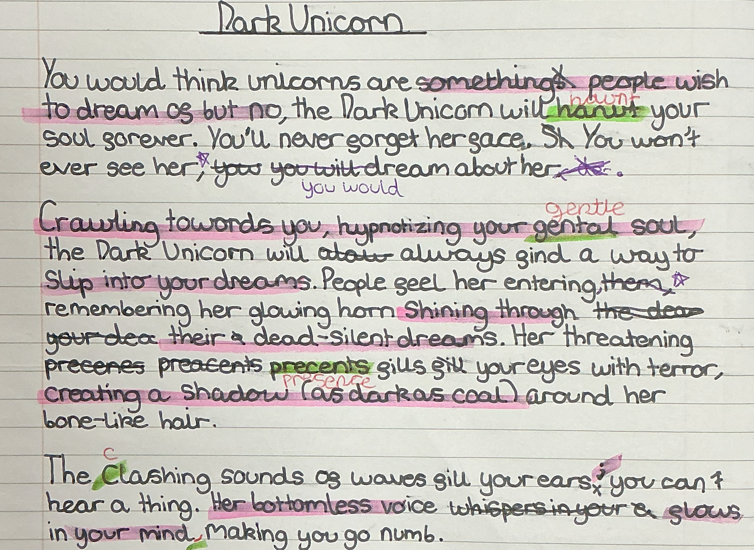 Dark Unicorn
You would think unicorns are somethings people wish
to dream of but no, the Dark Unicorn will hanut your
haunt
soul forever. You'll never forget her face. Sh You won't
ever see her, you you will dream about her
you would
gentle
Crawling towords you, hypnotizing your gental soul,
the Dark Unicorn will alow always find a way to
slip into your dreams. People feel her entering, them,
remembering her glowing horn shining through the dea
your dea their dead-silent dreams. Her threatening
precenes preacents precents fills fill your eyes with terror,
presence
creating a shadow (as dark as coal) around her
bone-like hair.
c
The Clashing sounds of waves fill your ears; you can't
hear a thing. Her bottomless voice whispers in your & glows
in your mind, making you go numb.